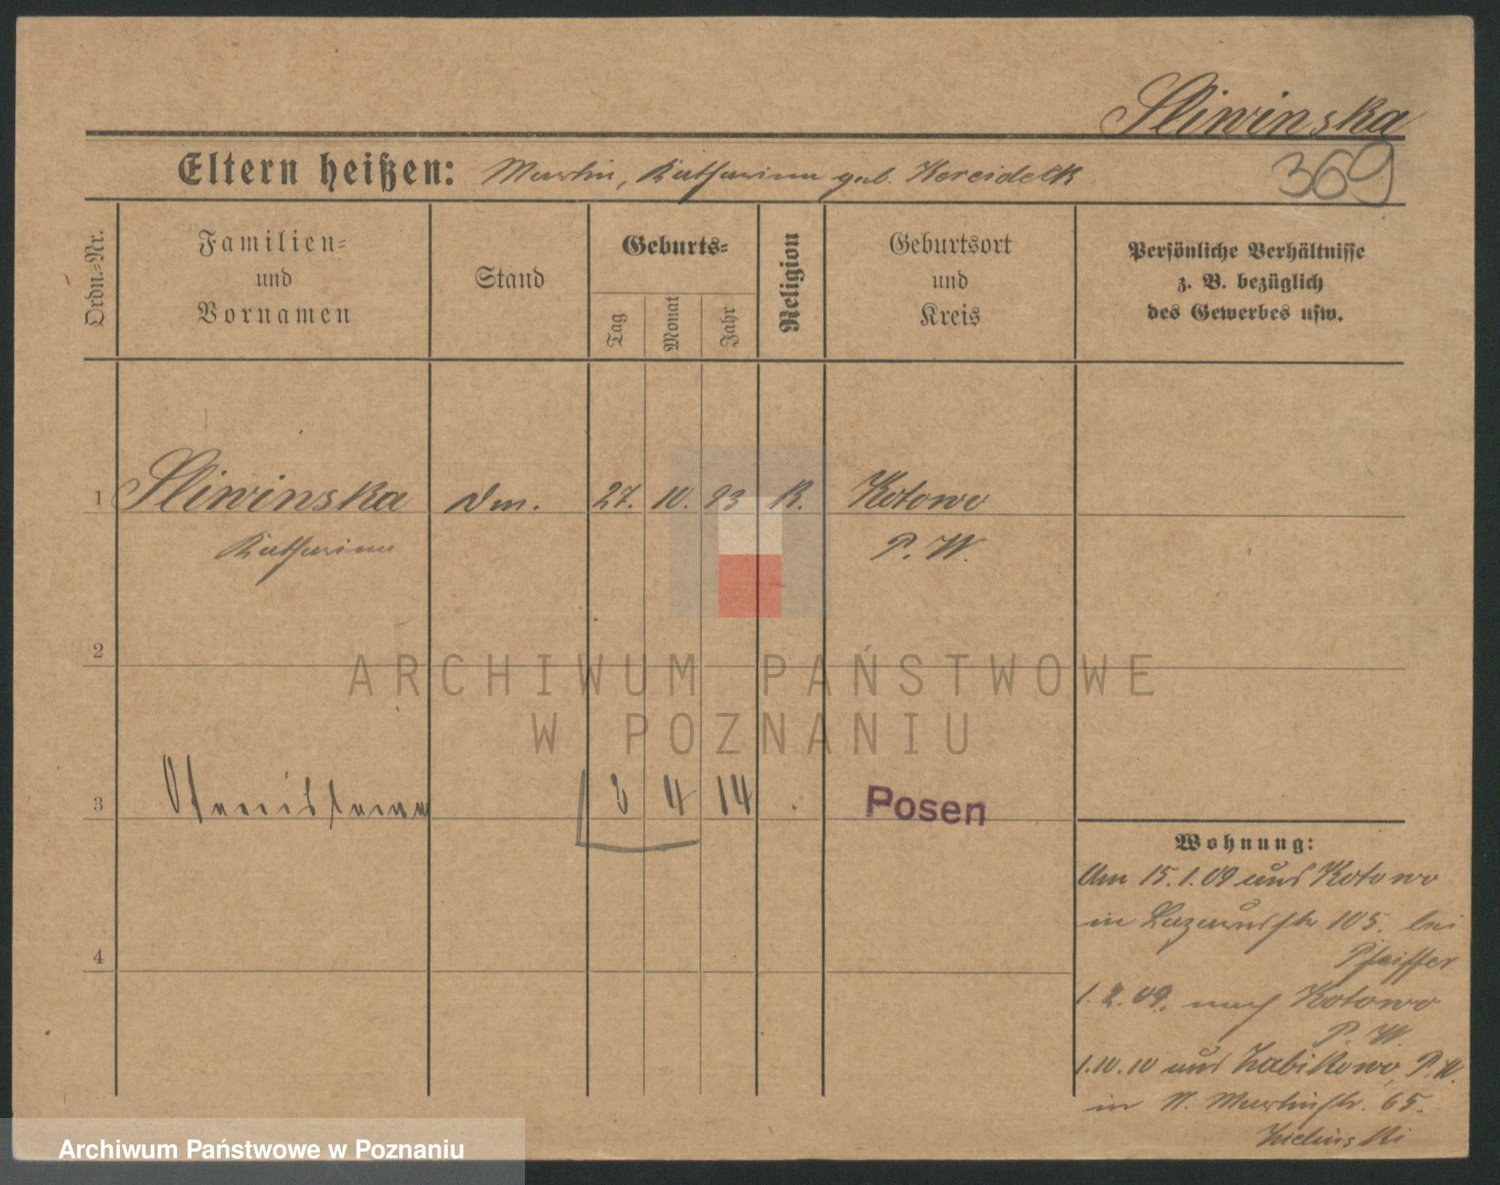 Sliwinska
369
Eltern heißen: Martin, Katharina geb.
Ordn.-Nr.
Familien-
und
Vornamen
Stand
Geburts-
Tag
Monat
Jahr
Religion
Geburtsort
und
Kreis
Persönliche Verhältnisse
z. B. bezüglich
des Gewerbes usw.
1 Sliwinska Dm. 27. 10. 93 K. Kotowo
Katharina P. W.
2
ARCHIWUM PAŃSTWOWE
W POZNANIU
3 Stanislawa 3 4 14 Posen
Wohnung:
Am 15.1.09 aus Kotowo
in Lazarusstr. 105. bei
Pfeiffer
4
1.2.09. nach Kotowo
P. W.
1.10.10 aus Zabikowo, P. W.
in St. Martinstr. 65.
Zielinski
Archiwum Państwowe w Poznaniu